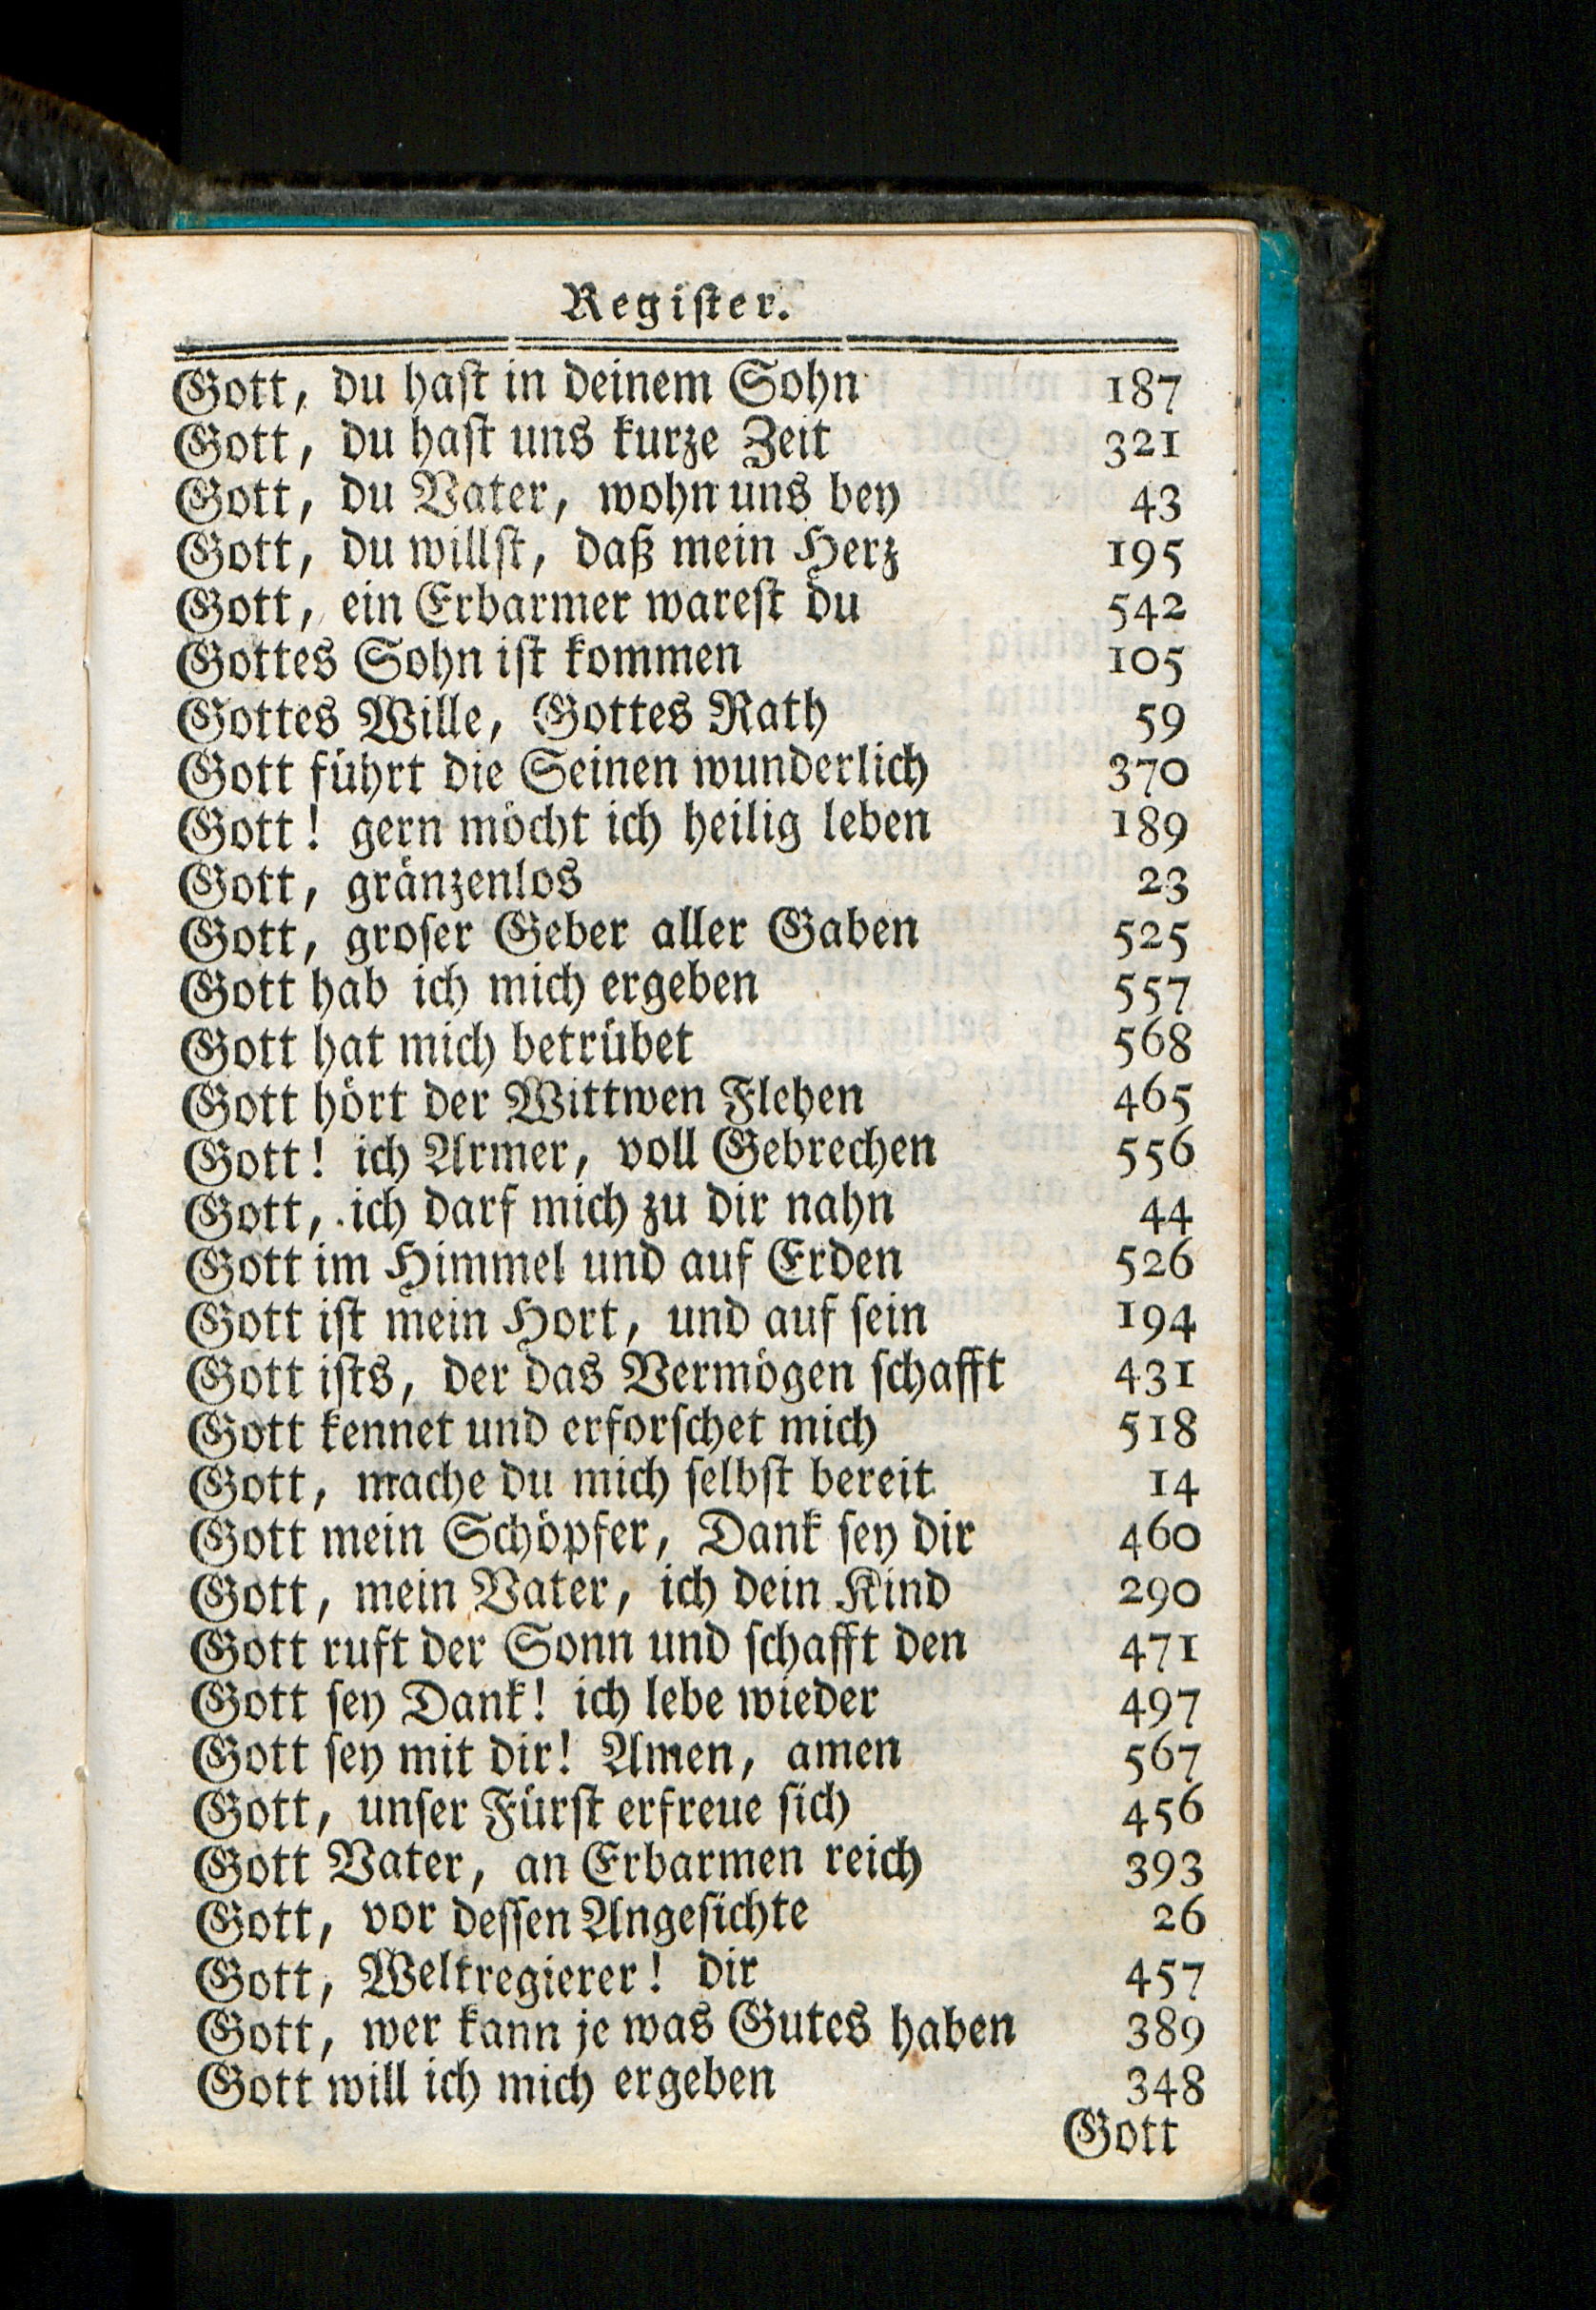 Register.
Gott, du hast in deinem Sohn 187
Gott, du hast uns kurze Zeit 321
Gott, du Vater, wohn uns bey 43
Gott, du willst, daß mein Herz 195
Gott, ein Erbarmer warest du 542
Gottes Sohn ist kommen 105
Gottes Wille, Gottes Rath 59
Gott führt die Seinen wunderlich 370
Gott! gern möcht ich heilig leben 189
Gott, gränzenlos 23
Gott, groser Geber aller Gaben 525
Gott hab ich mich ergeben 557
Gott hat mich betrübet 568
Gott hört der Wittwen Flehen 465
Gott! ich Armer, voll Gebrechen 556
Gott, ich darf mich zu dir nahn 44
Gott im Himmel und auf Erden 526
Gott ist mein Hort, und auf sein 194
Gott ists, der das Vermögen schafft 431
Gott kennet und erforschet mich 518
Gott, mache du mich selbst bereit 14
Gott mein Schöpfer, Dank sey dir 460
Gott, mein Vater, ich dein Kind 290
Gott ruft der Sonn und schafft den 471
Gott sey Dank! ich lebe wieder 497
Gott sey mit dir! Amen, amen 567
Gott, unser Fürst erfreue sich 456
Gott Vater, an Erbarmen reich 393
Gott, vor dessen Angesichte 26
Gott, Weltregierer! dir 457
Gott, wer kann je was Gutes haben 389
Gott will ich mich ergeben 348
Gott